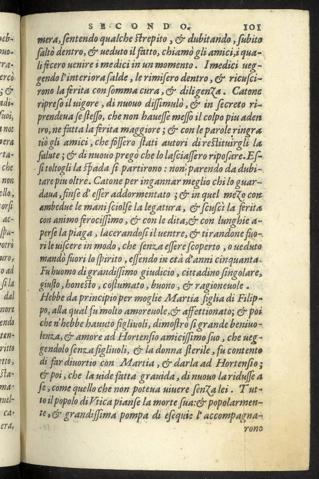 SECONDO. 101
mera, sentendo qualche strepito, & dubitando, subito
saltò dentro, & veduto il fatto, chiamò gli amici, i qua-
li fecero venire i medici in un momento. I medici veg-
gendo l'interiora salde, le rimisero dentro, & ricusci-
rono la ferita con somma cura, & diligenza. Catone
ripreso il vigore, di nuovo dissimulò, & in secreto ri-
prendeva se stesso, che non havesse messo il colpo piu aden
tro, ne fatta la ferita maggiore; & con le parole ringra
tiò gli amici, che fossero stati autori di restituirgli la
salute; & di nuovo pregò che lo lasciassero riposare. Es-
si toltogli la spada si partirono: non parendo da dubi-
tare piu oltre. Catone per ingannar meglio chi lo guar-
dava, finse d'esser addormentato; & in quel mezo con
ambedue le mani sciolse la legatura, & scuscì la ferita
con animo ferocissimo, & con le dita, & con lunghie a-
perse la piaga, lacerandosi il ventre, & tirandone fuo-
ri le viscere in modo, che senza essere scoperto, o veduto
mandò fuori lo spirito, essendo in età d'anni cinquanta.
Fu huomo di grandissimo giudicio, cittadino singolare,
giusto, honesto, costumato, buono, & ragionevole.
Hebbe da principio per moglie Martia figlia di Filip-
po, alla qual fu molto amorevole, & affettionato; & poi
che n'hebbe havuto figliuoli, dimostrò sì grande benivo-
lenza, & amore ad Hortensio amicissimo suo, che veg-
gendolo senza figliuoli, & la donna sterile, fu contento
di far divortio con Martia, & darla ad Hortensio;
& poi, che la vide fatta gravida, di nuovo la ridusse a
se, come quello che non poteva vivere senza lei. Tut-
to il popolo di Utica pianse la morte sua: & popolarmen-
te, & grandissima pompa di esequie l'accompagna-
rono